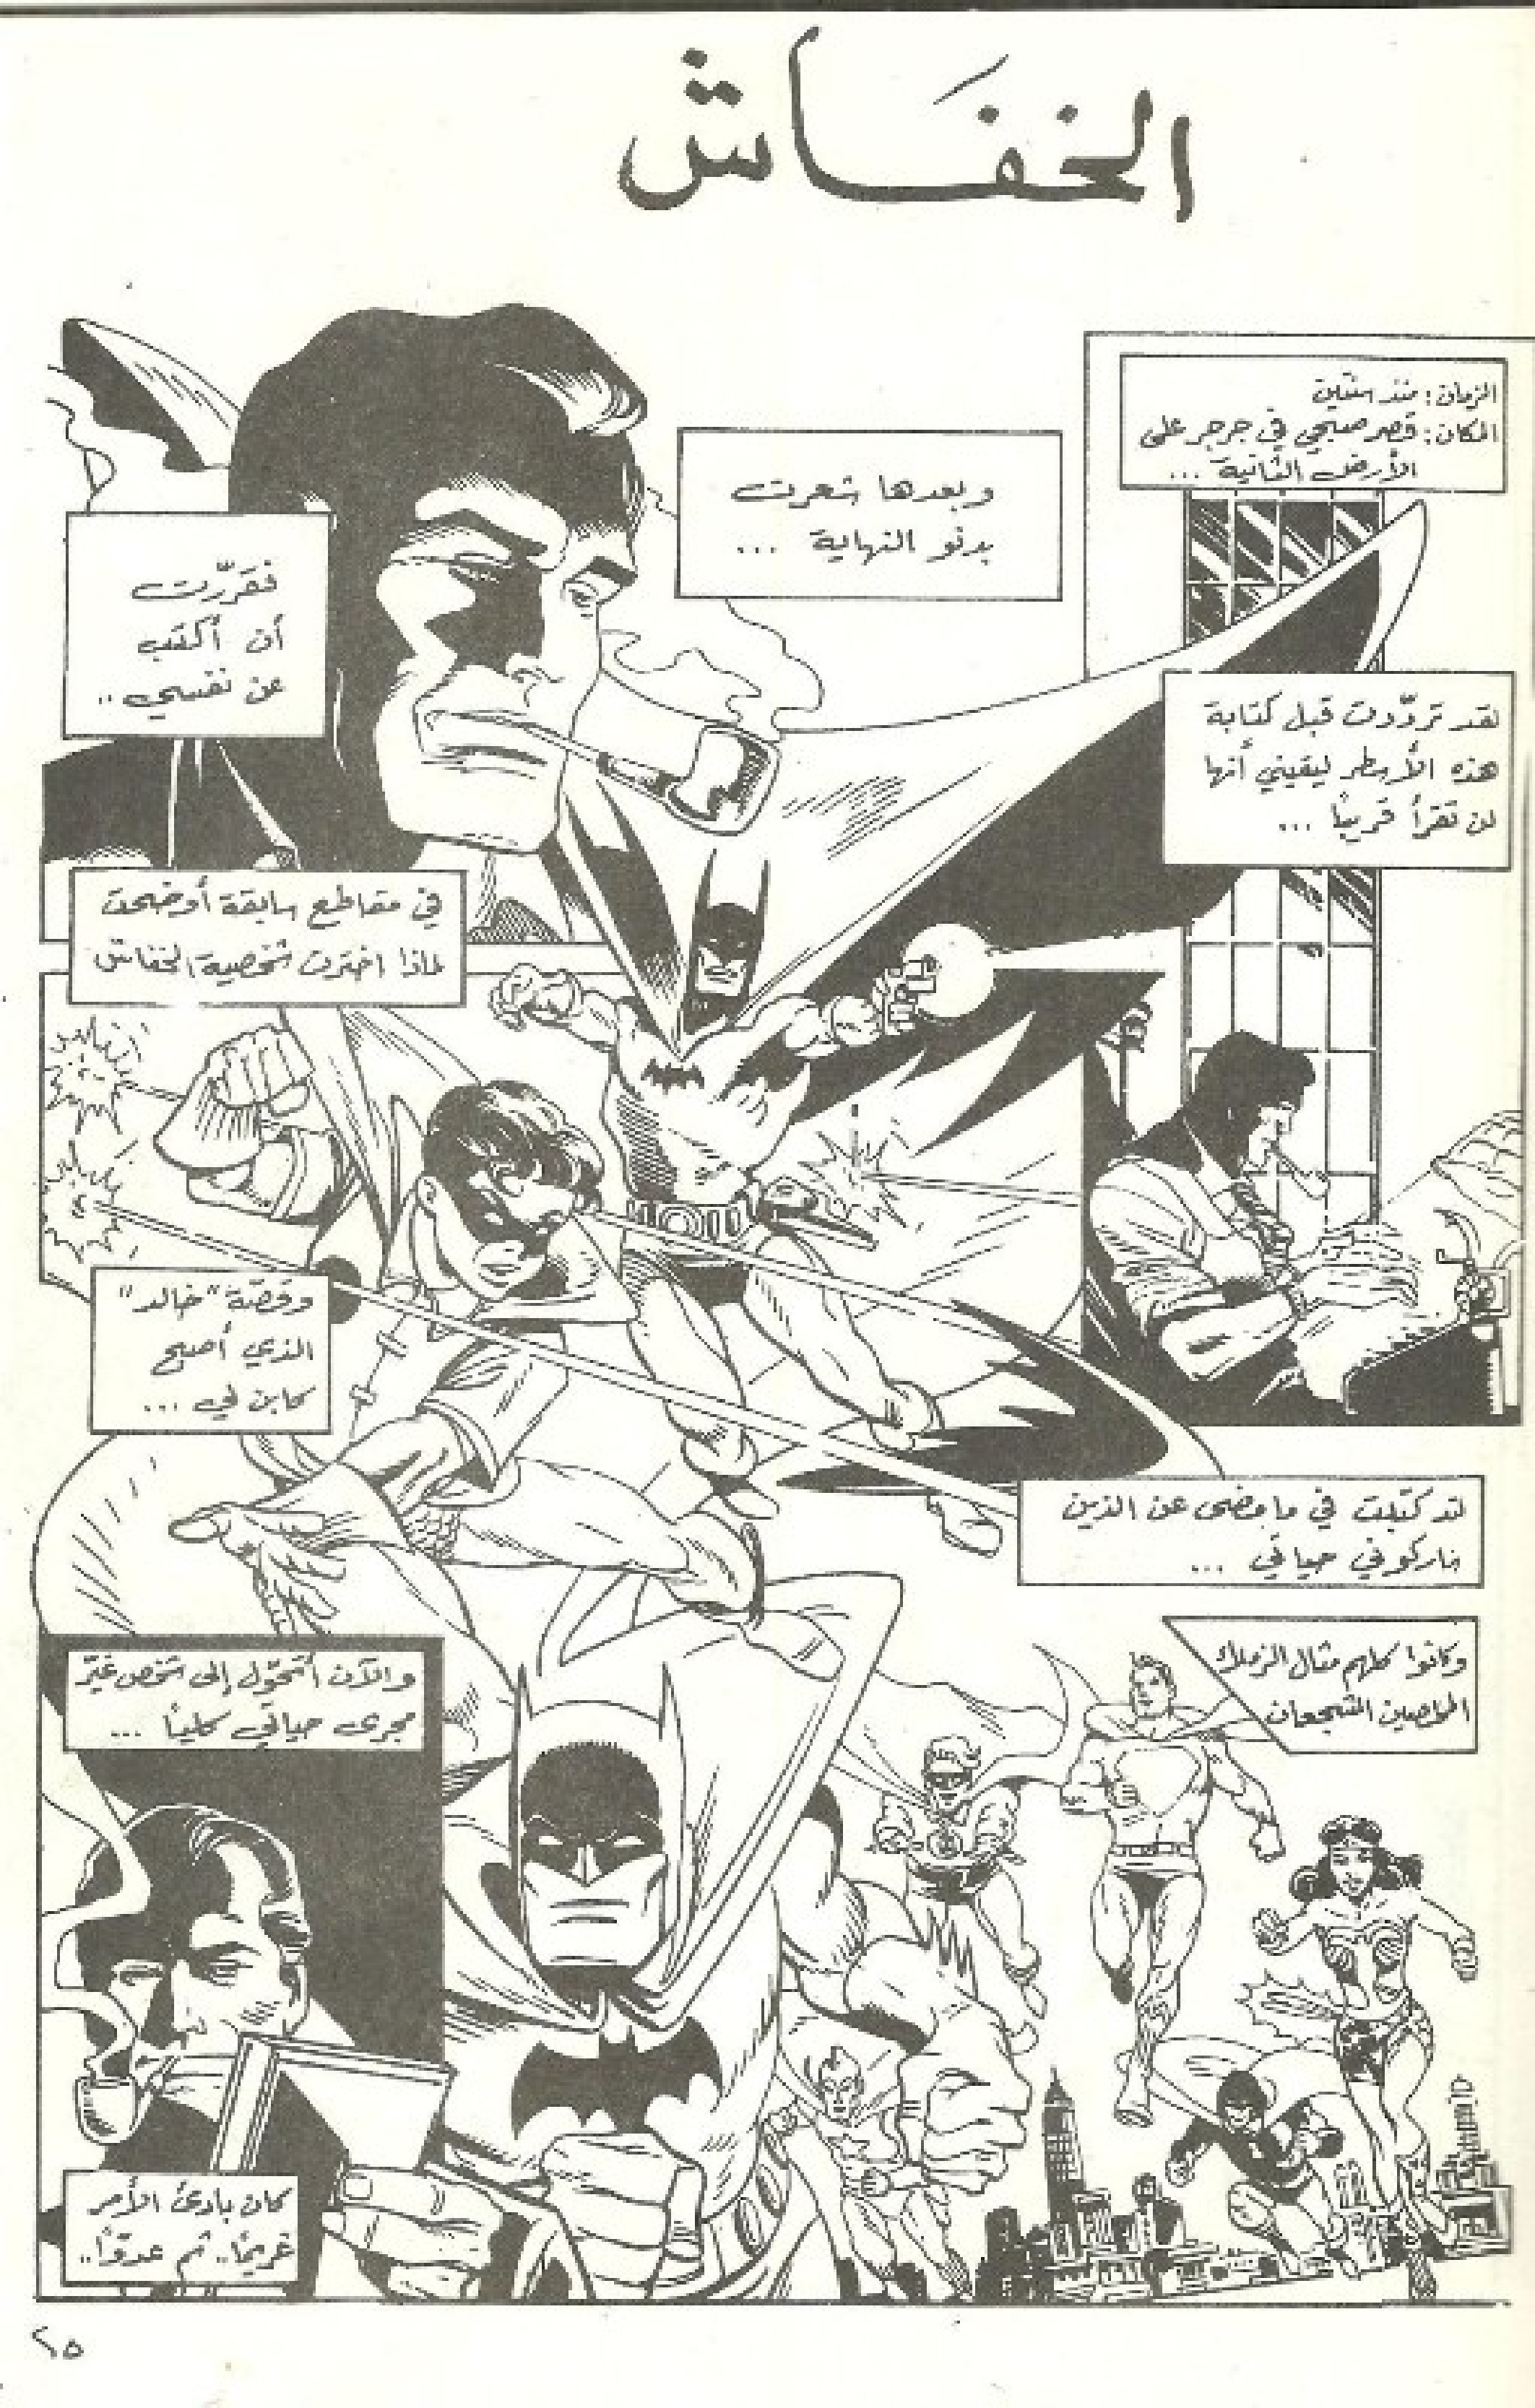 الخفَاش
الزمان: منذ سنتين
المكان: قصر صبحي في جرجر على
الأرض الثانية ...
لقد تردّدت قبل كتابة
هذه الأسطر ليقيني أنها
لن تقرأ قريبًا ...
وبعدها شعرت
بدنو النهاية ...
فقرّرت
أن أكتب
عن نفسي ..
في مقاطع سابقة أوضحت
لماذا اخترت شخصية الخفاش
وقصّة "خالد"
الذي أصبح
كابن لي ...
لقد كتبت في ما مضى عن الذين
شاركوني حياتي ...
وكانوا كلهم مثال الزملاء
المخلصين الشجعان
والآن أتحوّل إلى شخص غيّر
مجرى حياتي كليًا ...
كان بادئ الأمر
غريمًا.. ثم عدوًّا..
٢٥